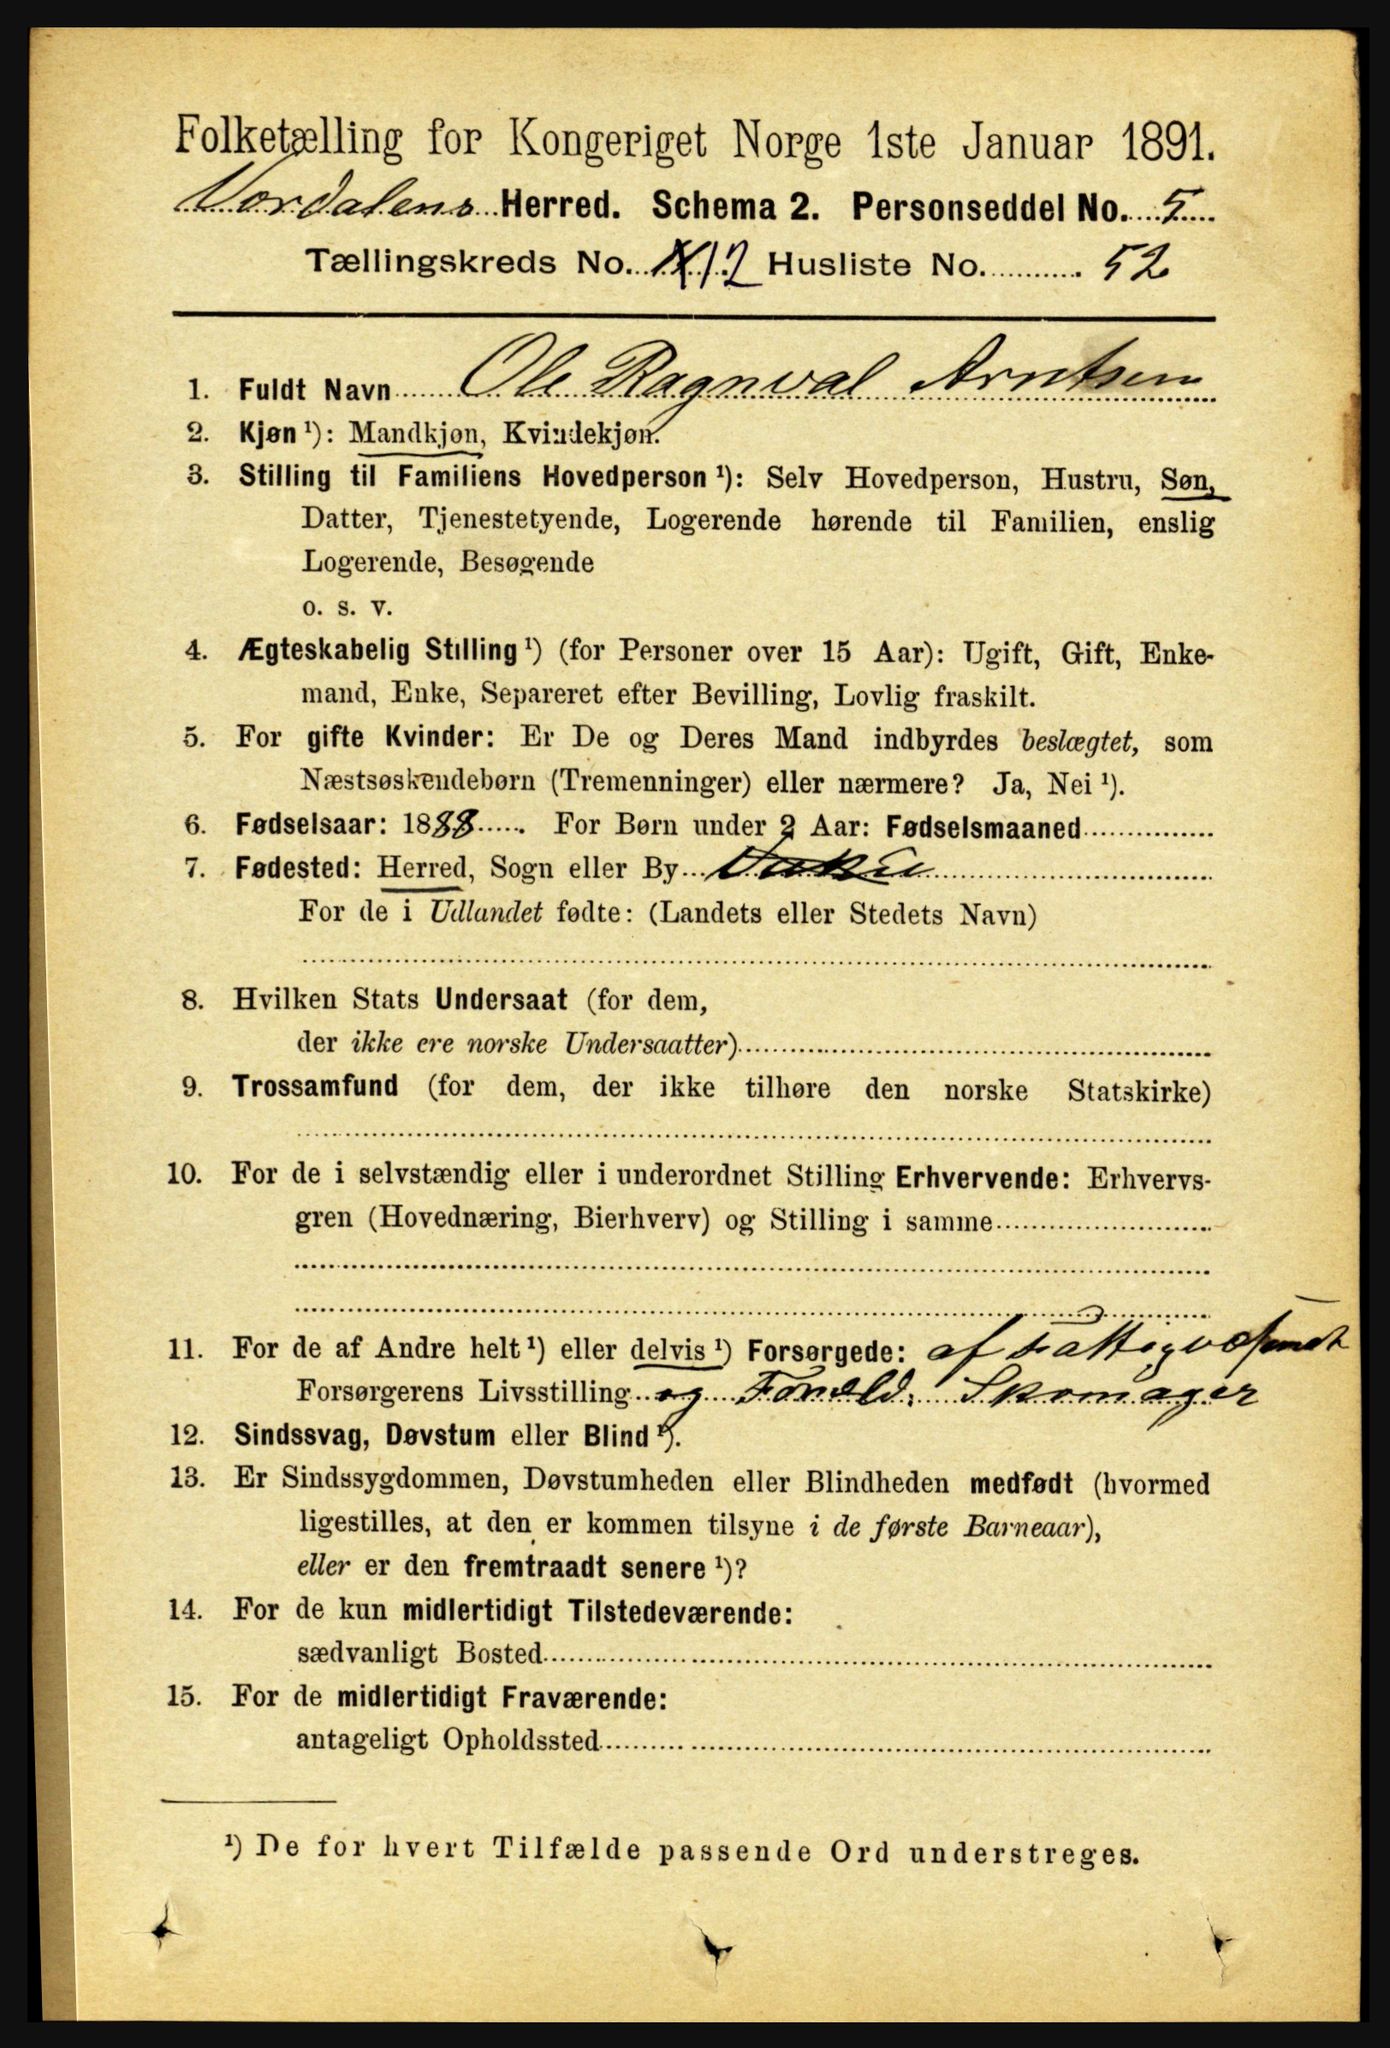 Folketælling for Kongeriget Norge 1ste Januar 1891.
Værdalens Herred. Schema 2. Personseddel No. 5
Tællingskreds No. 12 Husliste No. 52
1. Fuldt Navn Ole Ragnval Arntsen
2. Kjøn ¹): Mandkjøn, Kvindekjøn.
3. Stilling til Familiens Hovedperson ¹): Selv Hovedperson, Hustru, Søn,
Datter, Tjenestetyende, Logerende hørende til Familien, enslig
Logerende, Besøgende
o. s. v.
4. Ægteskabelig Stilling ¹) (for Personer over 15 Aar): Ugift, Gift, Enke-
mand, Enke, Separeret efter Bevilling, Lovlig fraskilt.
5. For gifte Kvinder: Er De og Deres Mand indbyrdes beslægtet, som
Næstsøskendebørn (Tremenninger) eller nærmere? Ja, Nei ¹).
6. Fødselsaar: 1888. For Børn under 2 Aar: Fødselsmaaned
7. Fødested: Herred, Sogn eller By
For de i Udlandet fødte: (Landets eller Stedets Navn)
8. Hvilken Stats Undersaat (for dem,
der ikke ere norske Undersaatter)
9. Trossamfund (for dem, der ikke tilhøre den norske Statskirke)
10. For de i selvstændig eller i underordnet Stilling Erhvervende: Erhvervs-
gren (Hovednæring, Bierhverv) og Stilling i samme
11. For de af Andre helt ¹) eller delvis ¹) Forsørgede: af Fattigvæsenet
Forsørgerens Livsstilling og Foræld. Skomager
12. Sindssvag, Døvstum eller Blind ¹).
13. Er Sindssygdommen, Døvstumheden eller Blindheden medfødt (hvormed
ligestilles, at den er kommen tilsyne i de første Barneaar),
eller er den fremtraadt senere ¹)?
14. For de kun midlertidigt Tilstedeværende:
sædvanligt Bosted
15. For de midlertidigt Fraværende:
antageligt Opholdssted
¹) De for hvert Tilfælde passende Ord understreges.